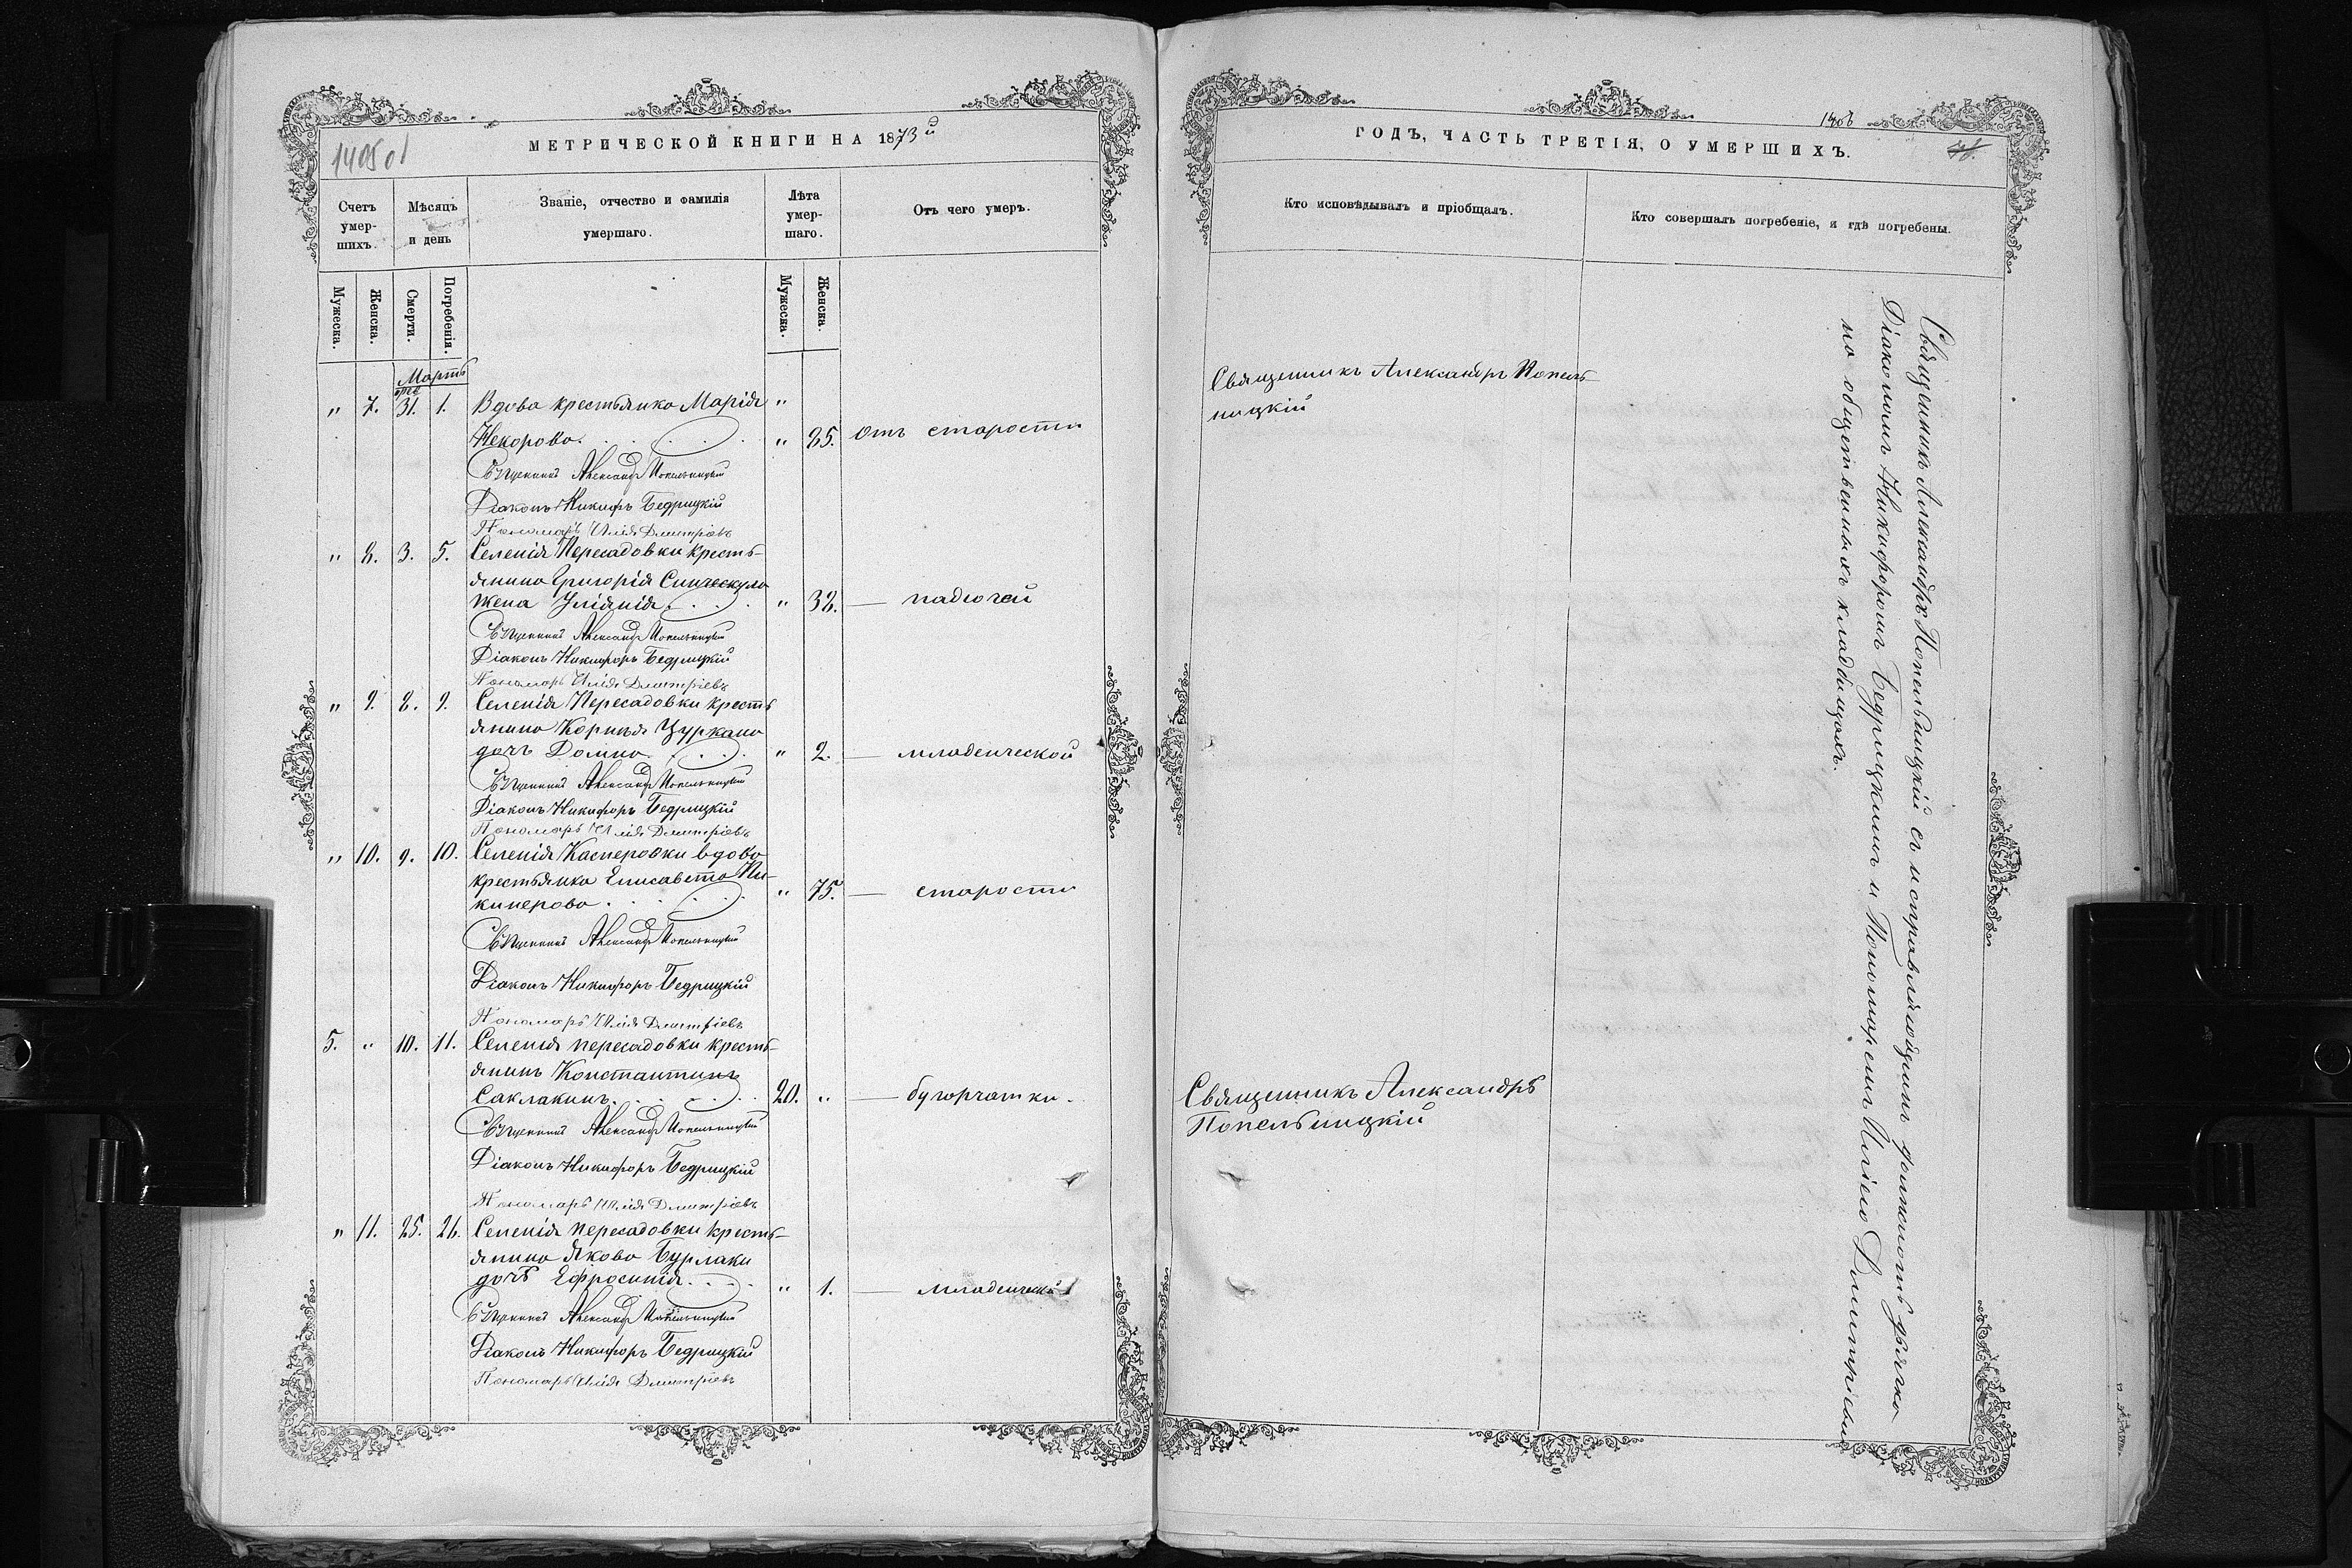 1405 об
МЕТРИЧЕСКОЙ КНИГИ НА 1873й
Счетъ умер-шихъ.
Мѣсяцъ и день
Званіе, отчество и фамилія умершаго.
Лѣта умер-шаго.
Отъ чего умеръ.
Мужеска.
Женска.
Смерти.
Погребенія.
Мужеска.
Женска.
Мартъ
" 7. 31. 1. Вдова крестьянка Марія "
" 85. отъ старости
Священникъ Александръ Попельницкій
Діаконъ Никифоръ Бедрицкій
Пономарь Илія Димитріевъ
" 8. 3. 5. Селенія Пересадовки кресть-
янина Григорія
жена Уліянія " 38. — падючей
Священникъ Александръ Попельницкій
Діаконъ Никифоръ Бедрицкій
Пономарь Илія Димитріевъ
" 9. 8. 9. Селенія Пересадовки кресть
янина Корнія Цуркана
дочь Домна " 2. — младенческой
Священникъ Александръ Попельницкій
Діаконъ Никифоръ Бедрицкій
Пономарь Илія Димитріевъ
" 10. 9. 10. Селенія Касперовки вдова
крестьянка Елисавета Ки-
киперова " 75. — старости
Священникъ Александръ Попельницкій
Діаконъ Никифоръ Бедрицкій
Пономарь Илія Димитріевъ
5. " 10. 11. Селенія пересадовки кресть-
янинъ Константинъ
Саклакинъ 20. " — бугорчатки.
Священникъ Александръ Попельницкій
Діаконъ Никифоръ Бедрицкій
Пономарь Илія Димитріевъ
" 11. 25. 26. Селенія пересадовки кресть-
янина Якова Бурлаки
дочь Ефросинія " 1. — младенческой
Священникъ Александръ Попельницкій
Діаконъ Никифоръ Бедрицкій
Пономарь Илія Димитріевъ
1406
ГОДЪ, ЧАСТЬ ТРЕТІЯ, О УМЕРШИХЪ.
Кто исповѣдывалъ и пріобщалъ.
Кто совершалъ погребеніе, и гдѣ погребены.
Священникъ Александръ Попель-
ницкій
Священникъ Александръ
Попельницкій
Священникъ Александръ Попельницкій съ исправляющимъ должность дьячка
Діакономъ Никифоромъ Бедрицкимъ и Пономаремъ Иліею Димитріевымъ
на общественныхъ кладбищахъ.